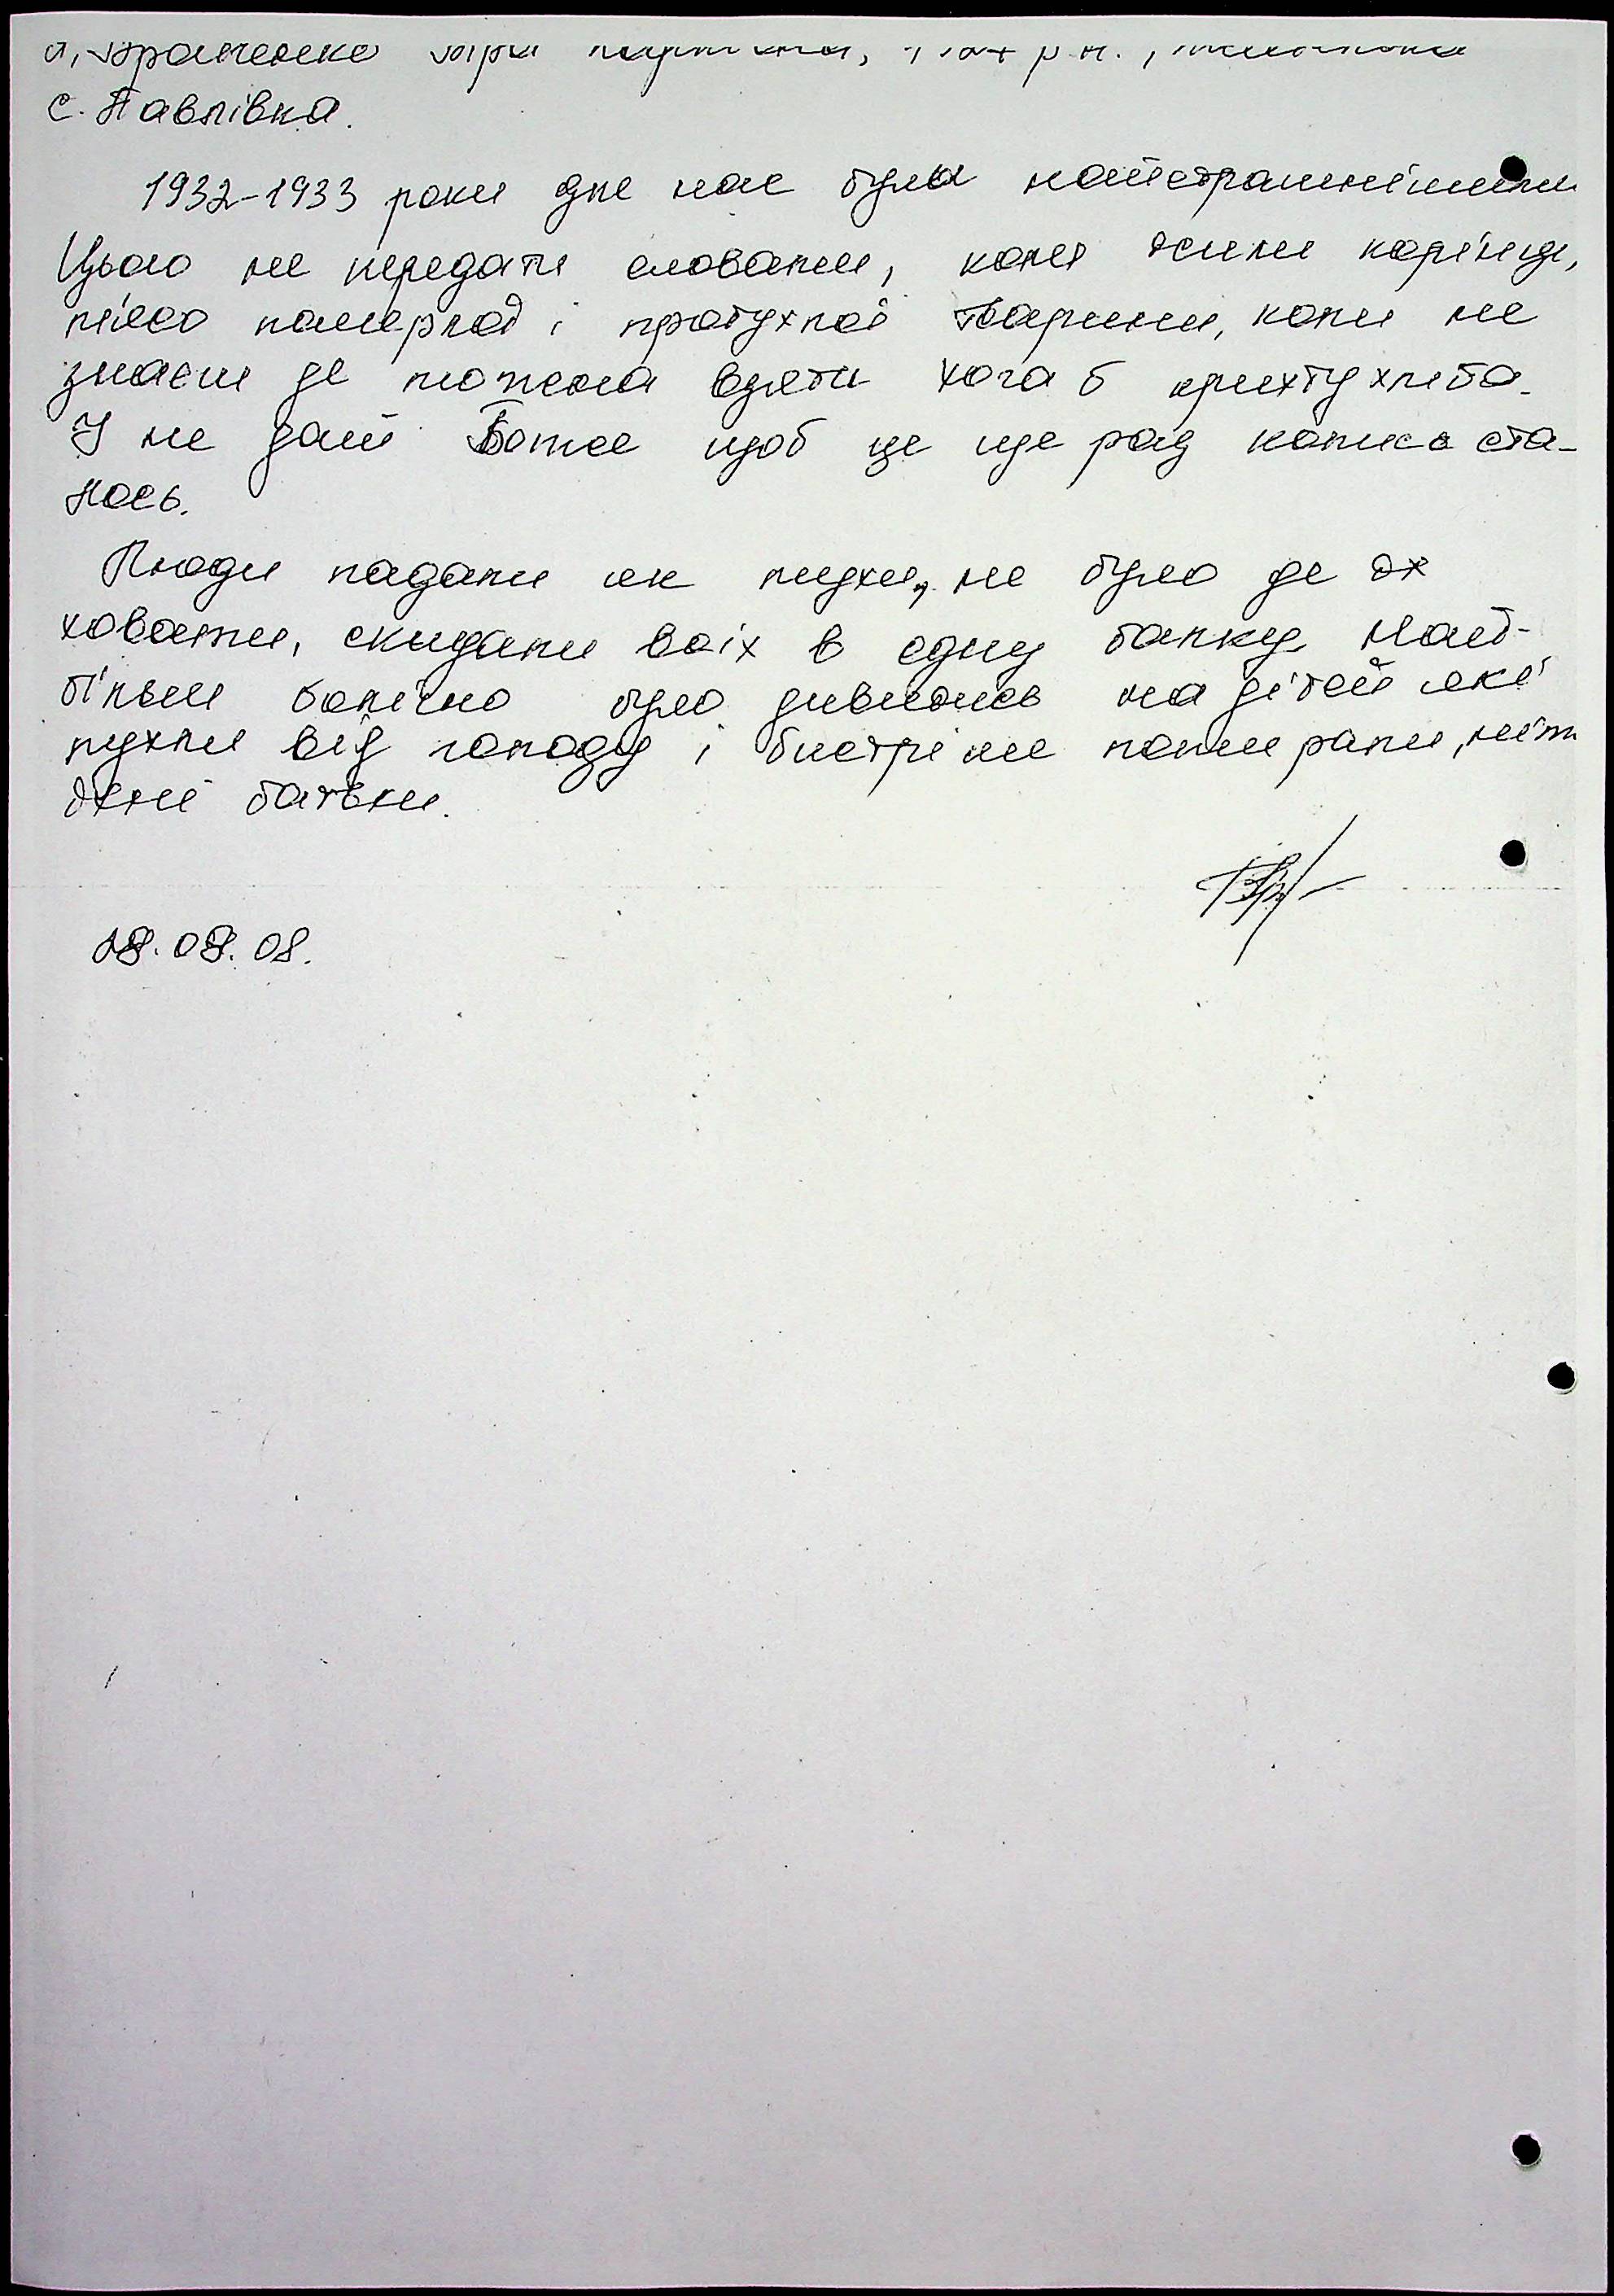 Я, Братченко р.н.,
с. Павлівка.
1932-1933 роки для нас були найстрашнішими
Цього не передати словами, коли їсили корінці,
м'ясо памерлої і протухлої тварини, коли не
знаєш де можена взяти хоча б крихту хліба.
І не дай Боже щоб це ще раз колись ста-
лось.
Люди падали як мухи, не було де їх
ховати, скидали всіх в одну балку. Най-
більш болісно було дивитись на дітей які
пухли від голоду і бистріше помирали, ніж
їхні батьки.
18.08.08.